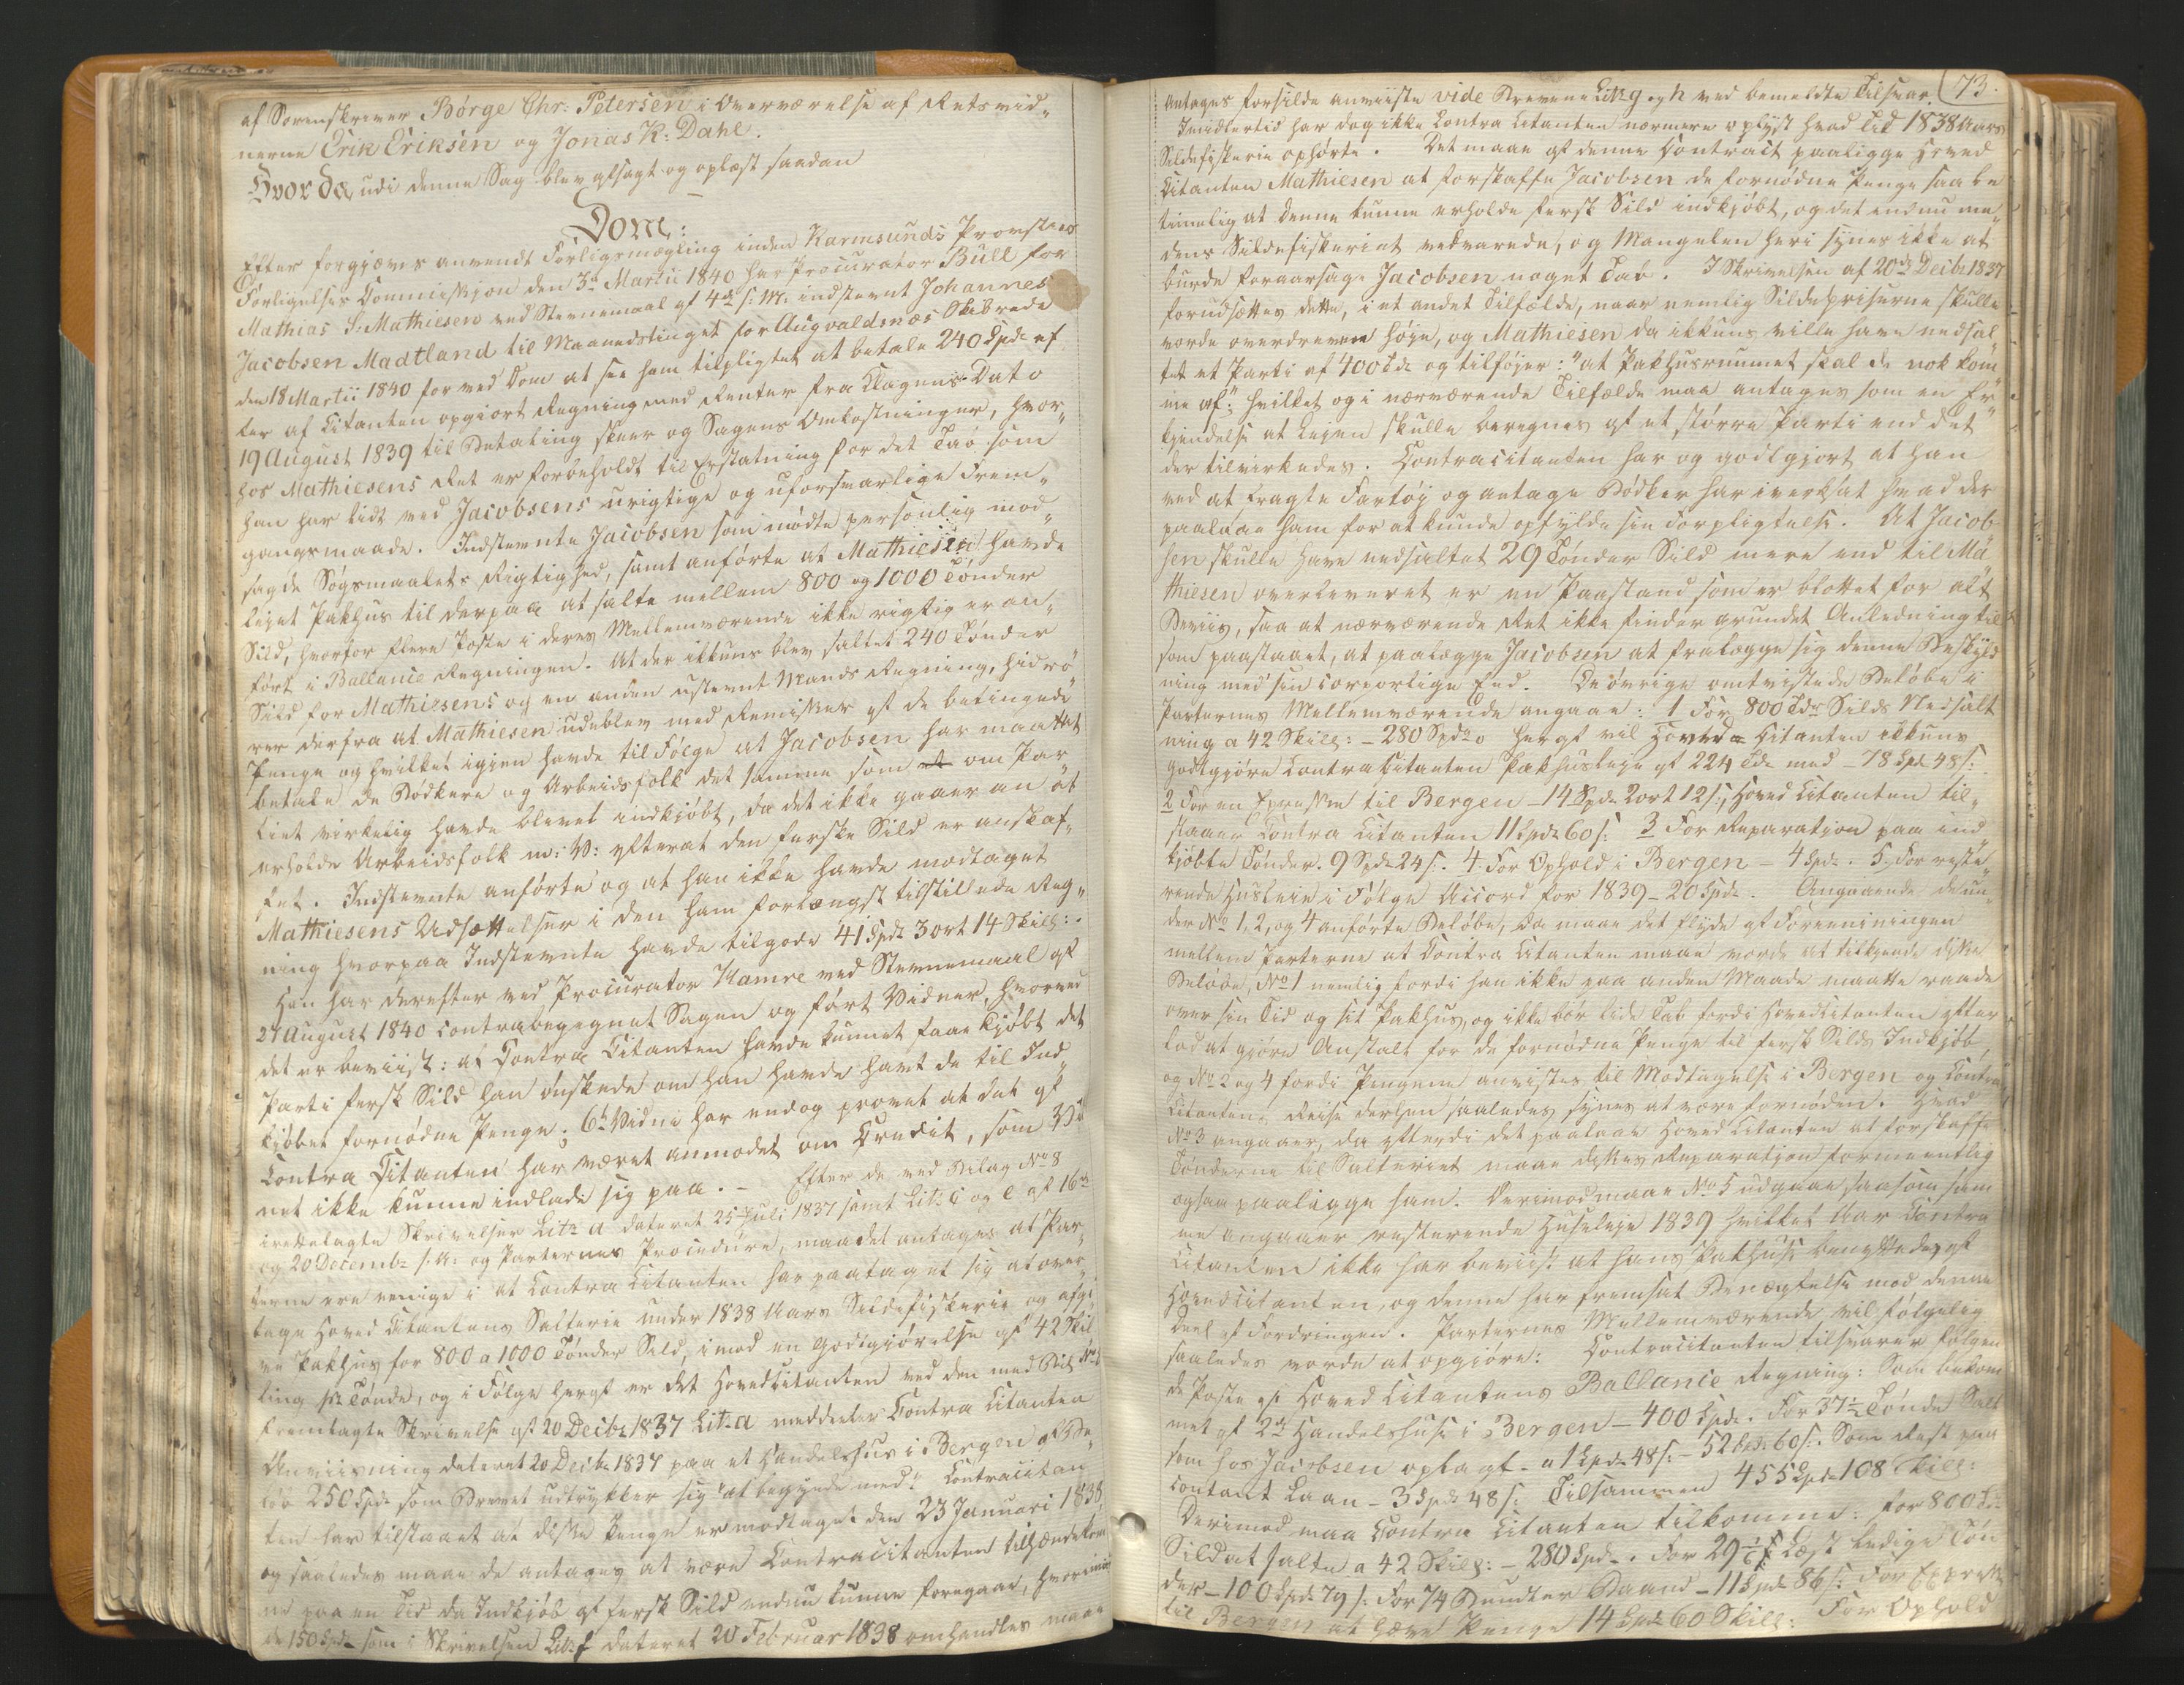 af Sorenskriver Børge Chr: Petersen i Overværelse af Retsvid„
nerne Erik Eriksen og Jonas K: Dahl.
Hvorda udi denne Sag blev afsagt og oplæst saadan
Dom:
Efter forgjæves anvendt Forligsmægling inden Karmsunds Provsties
Forligelses Commission den 3d Martii 1840 har Procurator Bull for
Mathias S: Mathiesen ved Stevnemaal af 4de s: M: indstevnt Johannes
Jacobsen Madtland til Maanedstinget for Augvaldsnæs Skibrede
den 18 Martii 1840 for ved Dom at see ham tilpligtet at betale 240 Spd. ef
ter af Citanten opgiort Regning med Renter fra Klagens Dato
19 August 1839 til Betaling skeer og Sagens Omkostninger, hvor„
hos Mathiesens Ret er forbeholdt til Erstatning for det Tab som
han har lidt ved Jacobsens urigtige og uforsvarlige Frem„
gangsmaade. Indstevnte Jacobsen som mødte personlig mod„
sagde Søgsmaalets Rigtighed, samt anførte at Mathiesen havde
lejet Pakhus til derpaa at salte mellem 800 og 1000 Tønder
Sild, hvorfor flere Poste i deres Mellemværende ikke rigtig er an„
ført i Ballance Regningen. At der ikkuns blev saltet 240 Tønder
Sild for Mathiesens og en anden ustevnt Mands Regning, hidrø„
rer derfra at Mathiesen udeblev med Remisser af de betingede
Penge og hvilket igjen havde til Følge at Jacobsen har maattet
betale de Bødkere og Arbeidsfolk det samme som om Par„
tiet virkelig havde blevet indkjøbt, da det ikke gaaer an at
erholde Arbeidsfolk m: V: efterat den ferske Sild er anskaf„
fet. Indstevnte anførte og at han ikke havde modtaget
Mathiesens Udsættelser i den ham forlængst tilstillede Reg„
ning hvorpaa Indstevnte havde tilgode 41 Spd. 3 ort 14 Skill:.
Han har derefter ved Procurator Hamre ved Stevnemaal af
27 August 1840 contrabegegnet Sagen og ført Vidner, hvorved
det er beviist: at Contra Citanten havde kunnet faae kjøbt det
Parti fersk Sild han ønskede om han havde havt de til Ind„
kjøbet fornødne Penge; 6te Vidne har endog provet at det af
Contra Citanten har været anmodet om Credit, som Vid
net ikke kunne indlade sig paa. – Efter de ved Bilag No 8
irettelagte Skrivelser Litr. a dateret 25 Juli 1837 samt Lit: c og e af 16de
og 20 Decembr. s: A: og Parternes Procedure, maa det antages at Par„
terne ere enige i at Contra Citanten har paataget sig at over„
tage Hoved Citantens Salterie under 1838 Aars Sildefiskerie og afgi„
ve Pakhus for 800 a 1000 Tønder Sild, imod en Godtgjørelse af 42 Skil
ling pr. Tønde, og i Følge heraf er det Hovedcitanten ved den med Bil: No 1
fremlagte Skrivelse af 20 Decbr. 1837 Lit. a meddeeler Contra Citanten
Anviisning dateret 20 Decbr. 1837 paa et Handelshus i Bergen af Be„
løb 250 Spd. som Brevet udtrykker sig "at begynde med". Contracitan
ten har tilstaaet at disse Penge er modtaget den 23 Januari 1838,
og saaledes maae de antages at være Contracitanten tilhændekom
ne paa en Tid da Indkjøb af fersk Sild endnu kunne foregaae, hvorimod
de 150 Spd. som i Skrivelsen Litr. f dateret 20 Februar 1838 omhandles maae
73.
antages forsilde anviiste vide Brevene Litr. g og h ved bemeldte Tilsvar.
Imidlertid har dog ikke Contra Citanten nærmere oplyst hvad Tid 1838 Aars
Sildefiskerie ophørte. Det maae af denne Contract paaligge Hoved
Citanten Mathiesen at forskaffe Jacobsen de fornødne Penge saa be
timelig at denne kunne erholde fersk Sild indkjøbt, og det endnu me„
dens Sildefiskeriet vedvarede, og Mangelen heri synes ikke at
burde foraarsage Jacobsen noget Tab. I Skrivelsen af 20de Decbr. 1837
forudsættes dette, i et andet Tilfælde, naar nemlig Sildepriserne skulle
vorde overdreven høje, og Mathiesen da ikkuns ville have nedsal„
tet et Parti af 400 Tdr. og tilføjer: "at Pakhusrummet skal De nok kom„
me af"; hvilket og i nærværende Tilfælde maa antages som en Er„
kjendelse at Lejen skulle beregnes af et større Parti end det
der tilvirkedes. Contracitanten har og godtgjort at han
ved at fragte Fartøj og antage Bødker har iverksat hvad der
paalaae ham for at kunde opfylde sin Forpligtelse. At Jacob„
sen skulle have nedsaltet 29 Tønder Sild mere end til Ma„
thiesen overleveret er en Paastand som er blottet for alt
Beviis, saa at nærværende Ret ikke finder grundet Anledning til
som paastaaet, at paalægge Jacobsen at fralægge sig denne Beskyld
ning med sin corporlige Eed. De øvrige omtvistede Beløbe i
Parternes Mellemværende angaae: 1 For 800 Tdr. Silds Nedsalt
ning a 42 Skill: – 280 Spd. heraf vil Hoved Citanten ikkuns
godtgjøre Contra Citanten Pakhusleje af 224 Tdr. med – 78 Spd. 48 s:.
2 For en Expresse til Bergen – 14 Spd. 2 ort 12 s:; Hoved Citanten til„
staaer Contra Citanten 11 Spd. 60 s: 3 For Reparation paa ind„
kjøbte Tønder. 9 Spd. 24 s:. 4. For Ophold i Bergen – 4 Spd.. 5. For reste„
rende Husleie i Følge Accord for 1839 – 20 Spd.. Angaaende de un„
der No 1, 2, og 4 anførte Beløbe, da maae det flyde af Foreeningen
mellem Parterne at Contra Citanten maae vorde at tilkjende disse
Beløbe, No 1 nemlig fordi han ikke paa anden Maade maatte raade
over sin Tid og sit Pakhus, og ikke bør lide Tab fordi Hovedcitanten efter
lod at gjøre Anstalt for de fornødne Penge til fersk Silds Indkjøb,
og No 2 og 4 fordi Pengene anvistes til Modtagelse i Bergen og Contra
Citantens Reise derhen saaledes synes at være fornøden. Hvad
No 3 angaaer, da efterdi det paalaae Hoved Citanten at forskaffe
Tønderne til Salteriet maae disses Reparation formeentlig
ogsaa paaligge ham. Derimod maae No 5 udgaae saasom sam
me angaaer resterende Husleje 1839 hvilket Aar Contra
Citanten ikke har beviist at hans Pakhus benyttedes af
Hovedcitanten, og denne har fremsat Benægtelse mod denne
Deel af Fordringen. Parternes Mellemværende vil følgelig
saaledes vorde at opgjøre: Contracitanten tilsvarer følgen
de Poste af Hoved Citantens Ballance Regning: Som bekom
met af 2de Handelshuse i Bergen – 400 Spd.. For 37½ Tønde Salt
som hos Jacobsen oplagt – a 1 Spd. 48 s: – 52 Spd. 60 s:. Som Rest paa
contant Laan – 3 Spd. 48 s: Tilsammen 455 Spd. 108 Skill:
Derimod maa Contra Citanten tilkomme: for 800 Tdr.
Sild at salte a 42 Skill: – 280 Spd.. For 29 Læst ledige Tøn
der – 100 Spd. 79 s: For 74 Bundter Baand – 11 Spd. 86 s: For Expresse
til Bergen at hæve Penge 14 Spd. 60 Skill: For Ophold